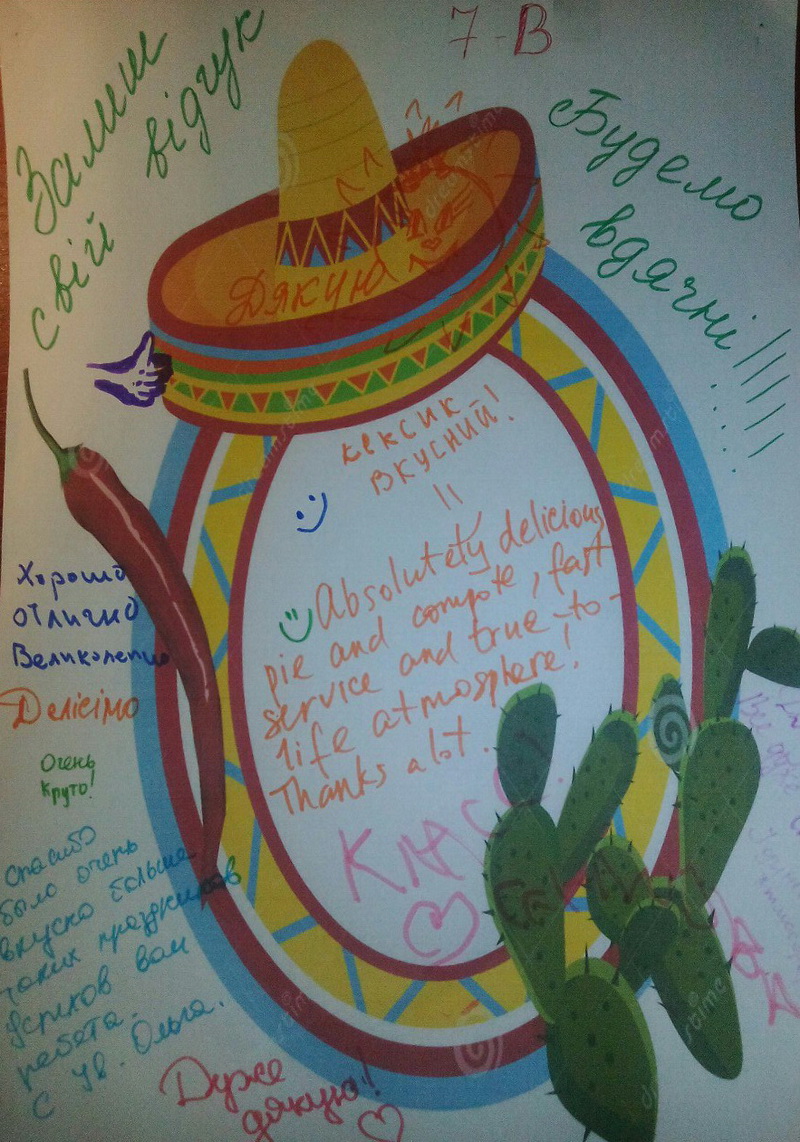 7-В
Залиш
свій відгук
Будемо
вдячні!!!!!
Дякую
кексик
вкусний!
Absolutely delicious
pie and compote, fast
service and true-to-
life atmosphere!
Thanks a lot.
Класс
Хорошо
отлично
Великолепно
Делісімо
Очень
круто!
Спасибо
было очень
вкусно больше
таких праздников
Успехов вам
ребята.
С ув. Ольга.
Дуже
дякую!!
dreamstime